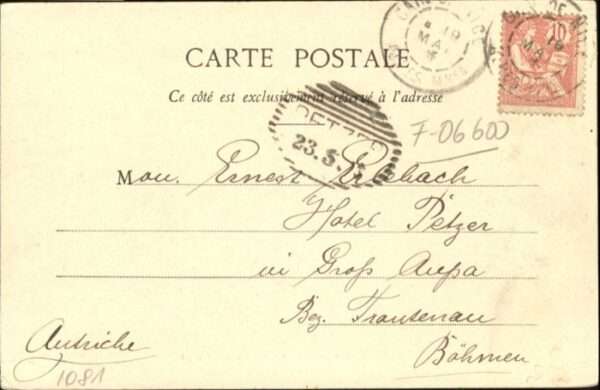 CARTE POSTALE
Ce côté est exclusivement réservé à l'adresse
19
MAI
10
PETZER
23.5.
F-06600
Mon. Ernest
Hôtel Petzer
in Groß Aupa
Bez. Trautenau
Böhmen
Autriche
1081